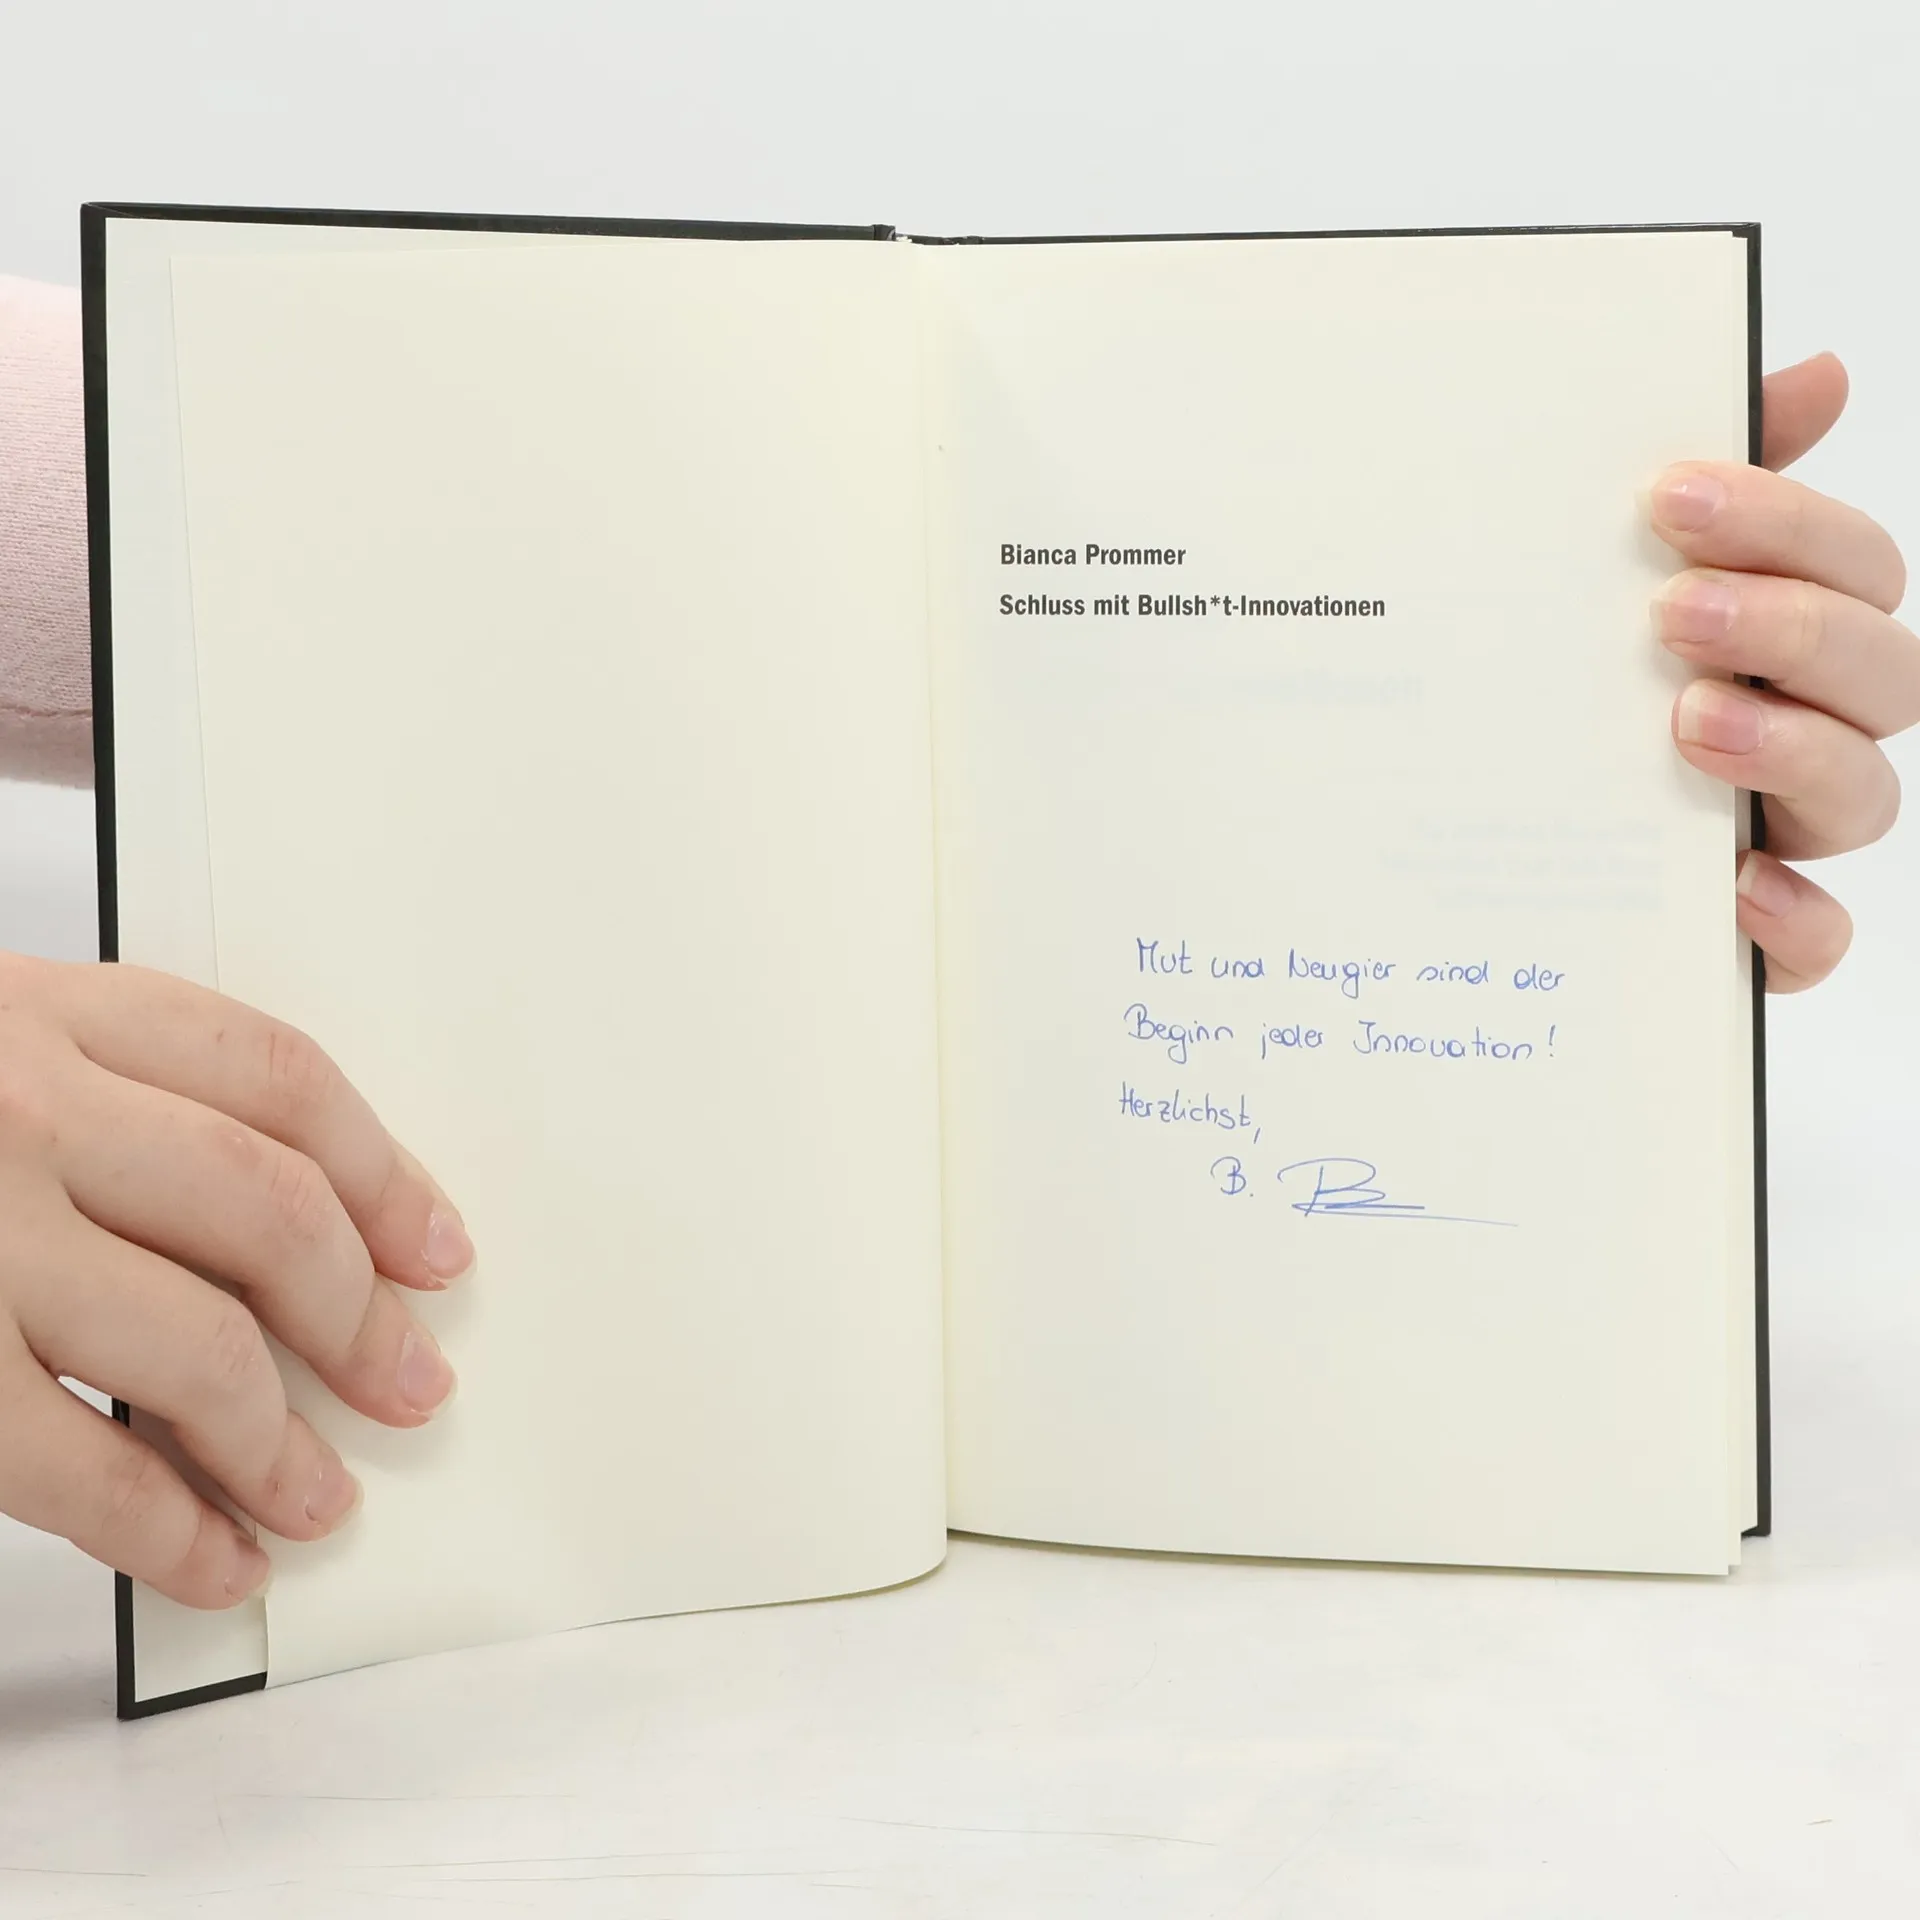 Bianca Prommer
Schluss mit Bullsh*t-Innovationen
Mut und Neugier sind der
Beginn jeder Innovation!
Herzlichst,
B.